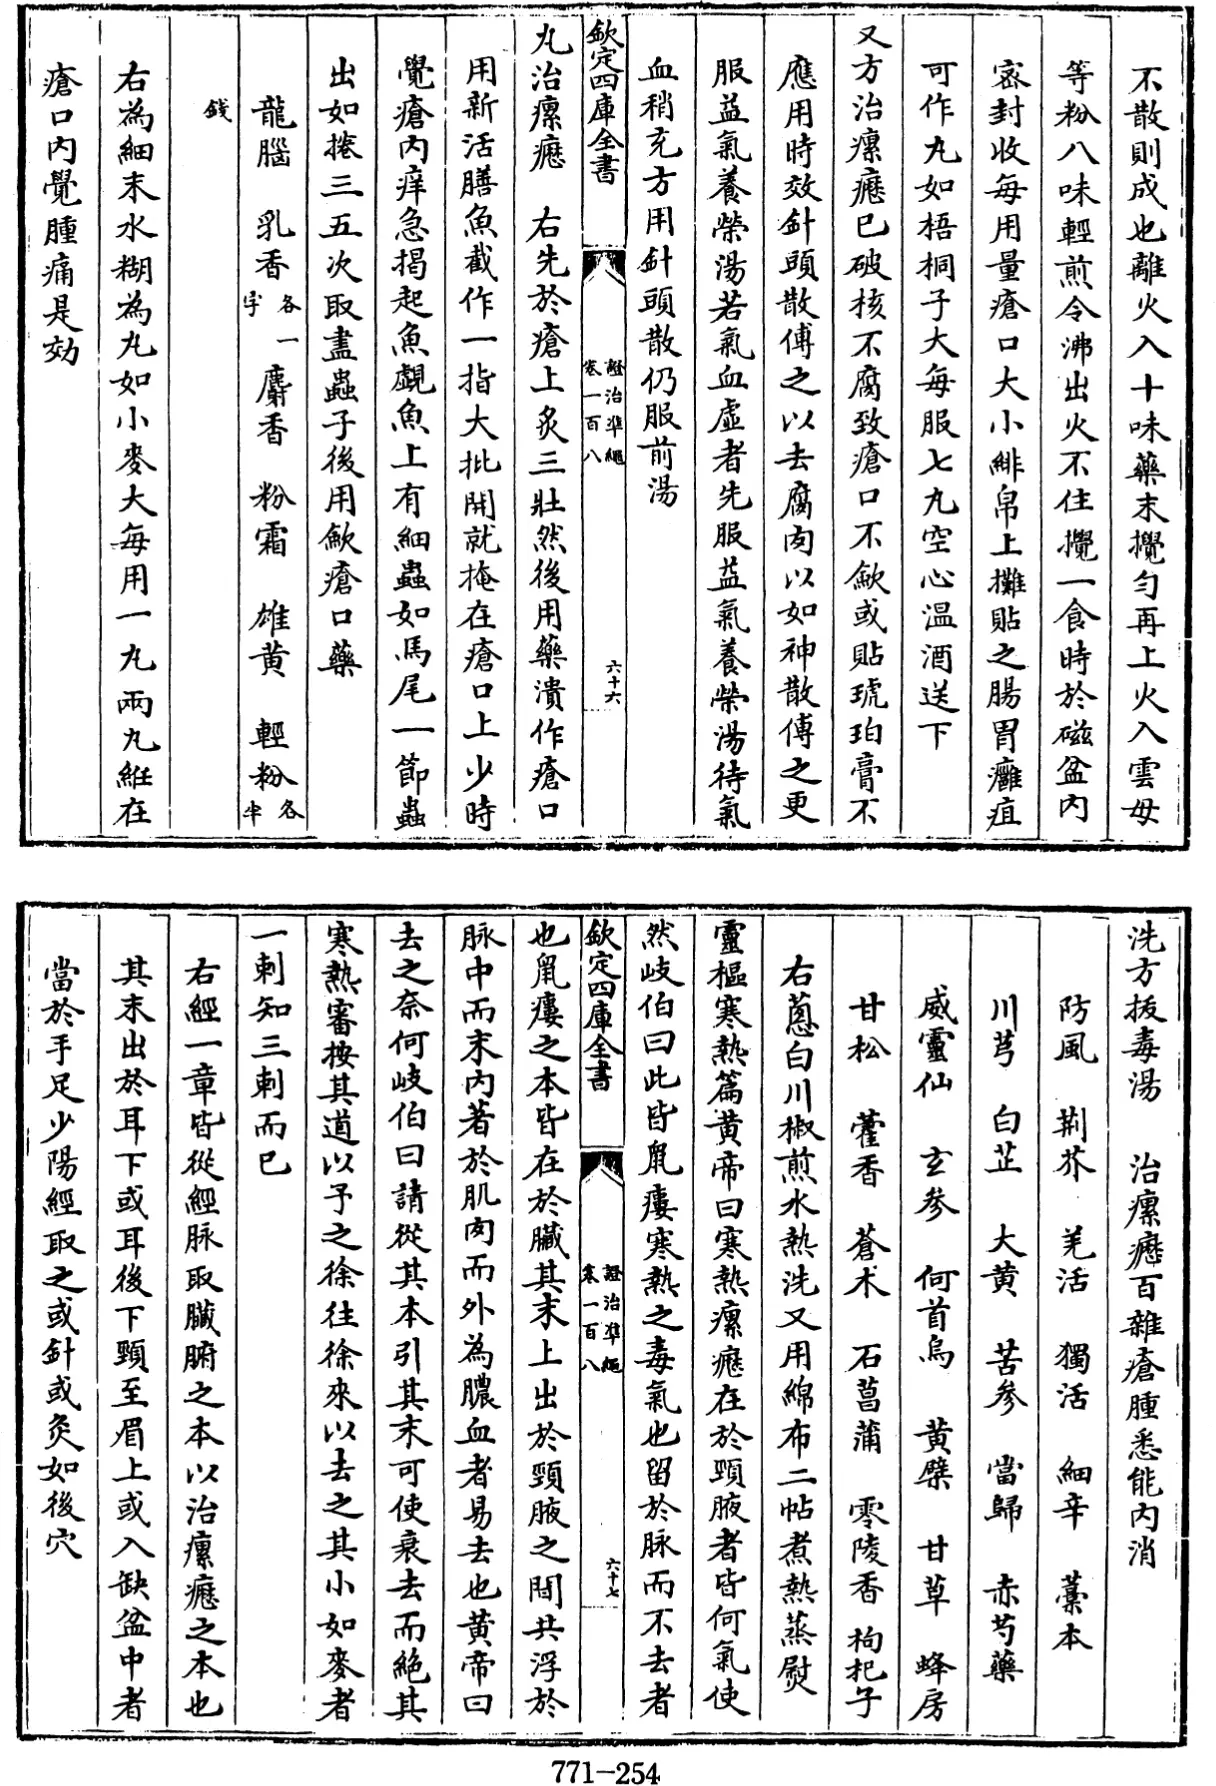 不散則成也離火入十味藥末攪勻再上火入雲母
等粉八味輕煎令沸出火不住攪一食時於磁盆內
密封收每用量瘡口大小緋帛上攤貼之腸胃癰疽
可作丸如梧桐子大每服七丸空心温酒送下
又方治瘰癧已破核不腐致瘡口不斂或貼琥珀膏不
應用時效針頭散傅之以去腐肉以如神散傅之更
服益氣養榮湯若氣血虛者先服益氣養榮湯待氣
血稍充方用針頭散仍服前湯
欽定四庫全書
證治準繩
卷一百八
六十六
丸治瘰癧　右先於瘡上炙三壯然後用藥潰作瘡口
用新活膳魚截作一指大批開就掩在瘡口上少時
覺瘡內痒急揭起魚覷魚上有細蟲如馬尾一節蟲
出如捲三五次取盡蟲子後用斂瘡口藥
龍腦　乳香各一字　麝香　粉霜　雄黄　輕粉各半
錢
右為細末水糊為丸如小麥大每用一丸兩丸絍在
瘡口内覺腫痛是効
洗方拔毒湯　治瘰癧百雜瘡腫悉能内消
防風　荆芥　羌活　獨活　細辛　藁本
川芎　白芷　大黄　苦參　當歸　赤芍藥
威靈仙　玄參　何首烏　黄蘗　甘草　蜂房
甘松　藿香　蒼术　石菖蒲　零陵香　枸杞子
右蔥白川椒煎水熱洗又用綿布二帖煮熱蒸熨
靈樞寒熱篇黄帝曰寒熱瘰癧在於頸腋者皆何氣使
然岐伯曰此皆鼠瘻寒熱之毒氣也留於脉而不去者
欽定四庫全書
證治準繩
卷一百八
六十七
也鼠瘻之本皆在於臟其末上出於頸腋之間其浮於
脉中而未内著於肌肉而外為膿血者易去也黄帝曰
去之奈何岐伯曰請從其本引其末可使衰去而絶其
寒熱審按其道以予之徐往徐來以去之其小如麥者
一刺知三刺而已
右經一章皆從經脉取臟腑之本以治瘰癧之本也
其末出於耳下或耳後下頸至眉上或入缺盆中者
當於手足少陽經取之或針或灸如後穴
771-254